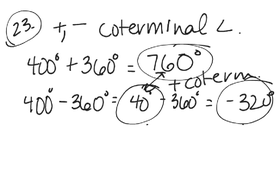 23. +, - coterminal ∠.
400° + 360° = 760°
+ coterm.
400° - 360° = 40° - 360° = -320°